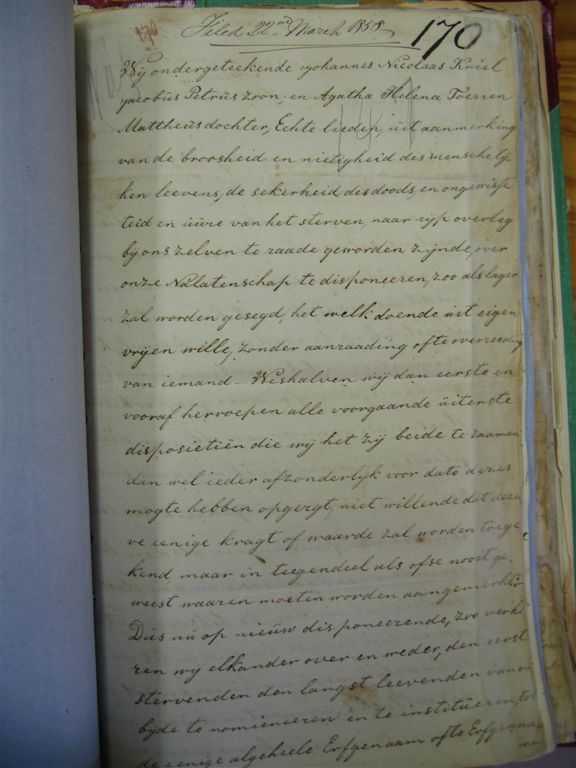 Filed 22nd March 1858
170
Wij ondergeteekende Johannes Nicolaas Kriel
Jacobus Petrus zoon, en Agatha Helena Toerien
Mattheus dochter, Echte lieden, uit aanmerking
van de broosheid en nietigheid des menschelij-
ken leevens, de sekerheid des doods, en ongewisse
teid en uure van het sterven, naar rijp overleg
bij ons zelven te raade geworden zijnde, over
onze Nalatenschap te disponeeren, zoo als lager
zal worden gesegd, het welk doende uit eigen
vrijen wille, zonder aanraading ofte overreeding
van iemand – Weshalven wij dan eerste en
vooraf herroepen alle voorgaande uiterste
disposietiën die wij het zij beide te zaamen
dan wel ieder afzonderlijk voor dato dezes
mogte hebben opgergt, niet willende dat deze
ve eenige kragt of waarde zal worden toege
kend maar in teegendeel als ofse nooit ge
weest waaren moeten worden aangemerkt
Dus nu op nieuw disponeerende, zoo verkla
ren wij elkander over en weder, den eerst
stervenden den langst leevenden van ons
bijde te nomieneeren en te instituëeren, tot
de eenige algeheele Erfgenaam ofte Erfgenaa